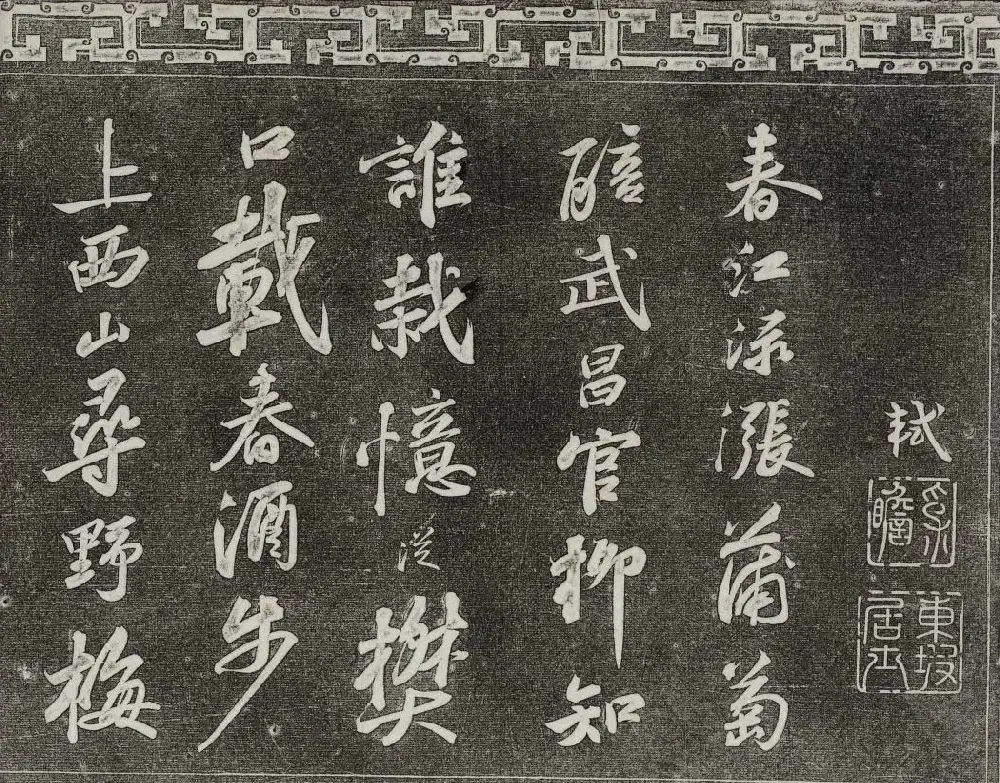 軾
東坡居士
春江淥漲蒲萄
醅武昌官柳知
誰栽憶從樊
口載春酒步
上西山尋野梅